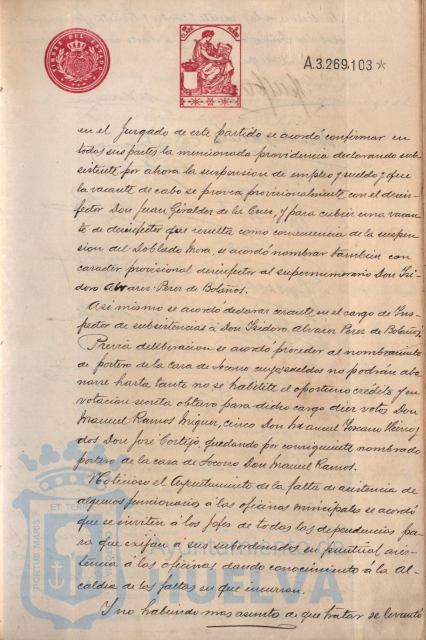 A.3.269.103 *
en el Juzgado de este partido se acordó confirmar en
todas sus partes la mencionada providencia declarando sub-
sistente por ahora la suspension de empleo y sueldo y que
la vacante de cabo se provea provisionalmente con el desin-
fector Don Juan Giraldez de la Cruz, y para cubrir una vacan-
te de desinfector que resulta como consecuencia de la suspen-
sion del Doblado Mora, se acordó nombrar tambien con
caracter provisional desinfector al supernumerario Don Isi-
doro Alvarez Perez de Bolaños.
Asi mismo se acordó declarar cesante en el cargo de Ins-
pector de subsistencias á Don Isidoro Alvarez Perez de Bolaños.
Previa deliberacion se acordó proceder al nombramiento
de portero de la casa de Socorro cuyos sueldos no podrán abo-
narse hasta tanto no se habilite el oportuno crédito y en
votacion secreta obtuvo para dicho cargo diez votos Don
Manuel Ramos Miguez, cinco Don Manuel y
dos Don José Cortejo quedando por consiguiente nombrado
portero de la casa de Socorro Don Manuel Ramos.
Noticioso el Ayuntamiento de la falta de asistencia de
algunos funcionarios á las oficinas municipales se acordó
que se inviten á los Jefes de todas las dependencias pa-
ra que exijan á sus subordinados su puntual asis-
tencia á las oficinas dando conocimiento á la Al-
caldia de las faltas en que incurran.
Y no habiendo mas asunto de que tratar se levantó
PORTUS MARIS ET TERRAE
Ayuntamiento de
HUELVA